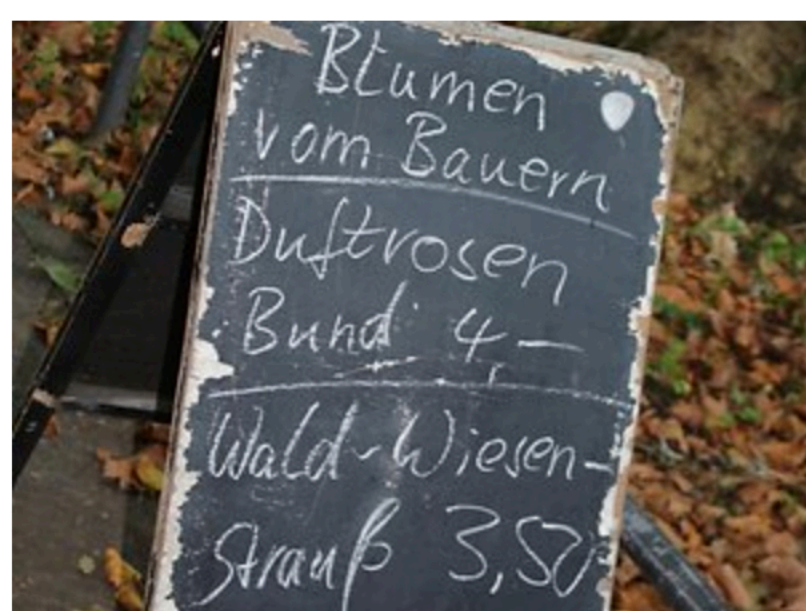 Blumen
vom Bauern
Duftrosen
Bund 4,—
Wald-Wiesen-
strauß 3,50